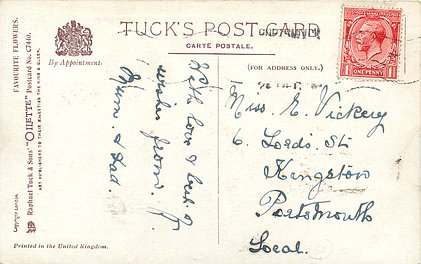 TUCK'S POST CARD
CARTE POSTALE.
(FOR ADDRESS ONLY.)
By Appointment.
FAVOURITE FLOWERS.
Raphael Tuck & Sons' "OILETTE" Postcard No. C7340.
ART PUBLISHERS TO THEIR MAJESTIES THE KING & QUEEN.
Printed in the United Kingdom.
With love & best of
wishes from
Mum & Dad.
Miss E. Vickery
6. Lords. St
Kingston
Portsmouth
Local.
1 ONE PENNY 1